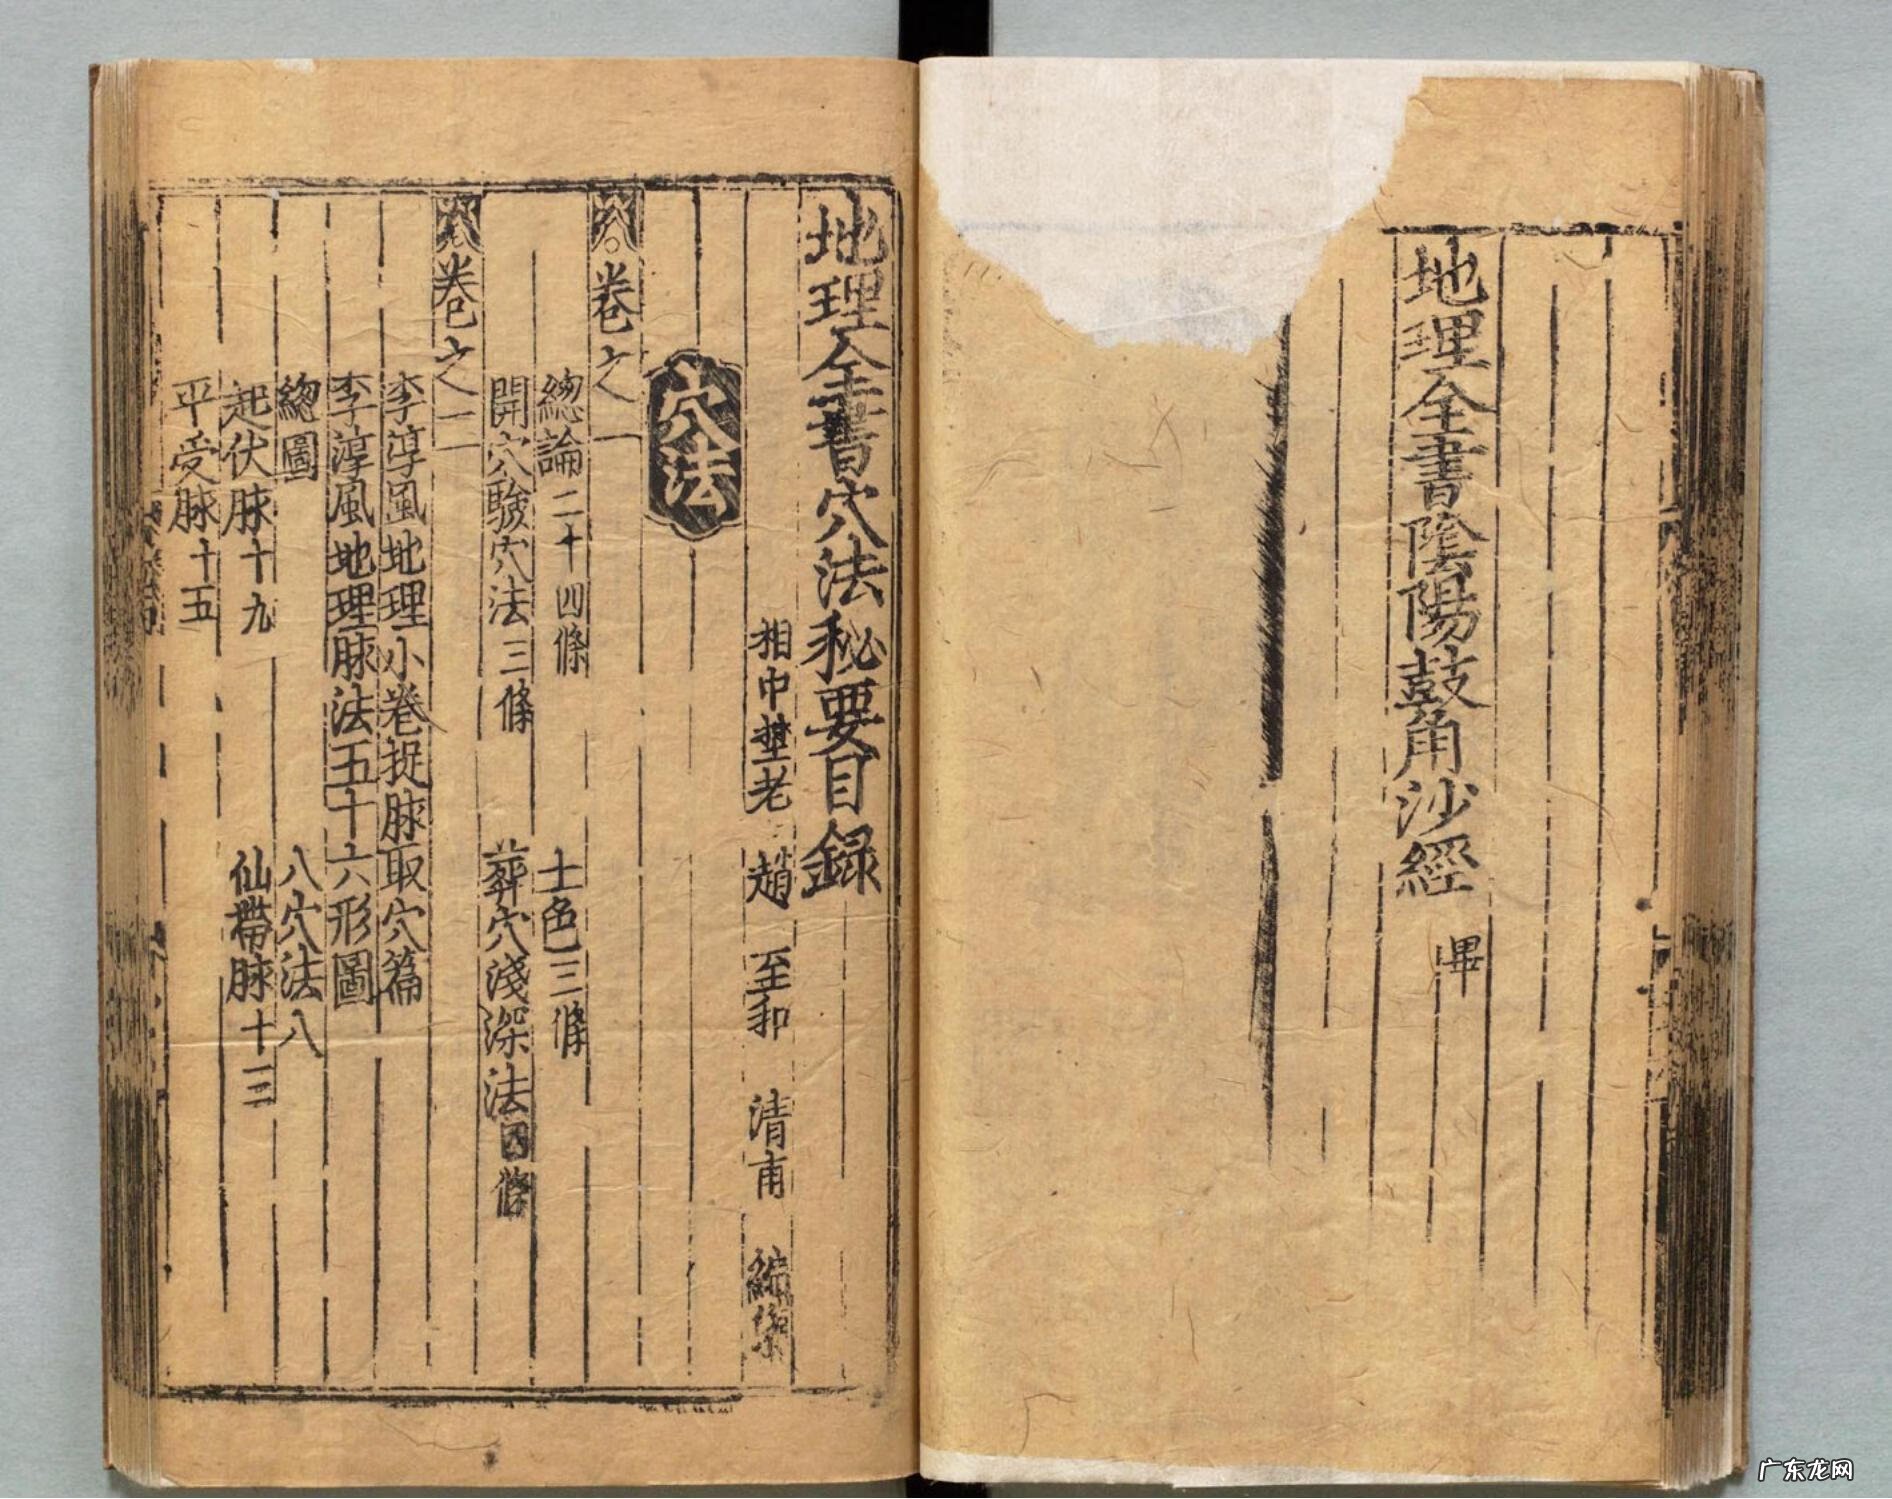 地理全書陰陽鼓角沙經 畢
地理全書穴法秘要目錄
相中埜老 趙 至和 清甫 編集
穴法
卷之一
總論二十四條 土色三條
開穴驗穴法三條 葬穴淺深法四條
卷之二
李淳風地理小卷捉脉取穴篇
李淳風地理脉法五十六形圖
總圖 八穴法八
起伏脉十九 仙帶脉十三
平受脉十五
广东龙网